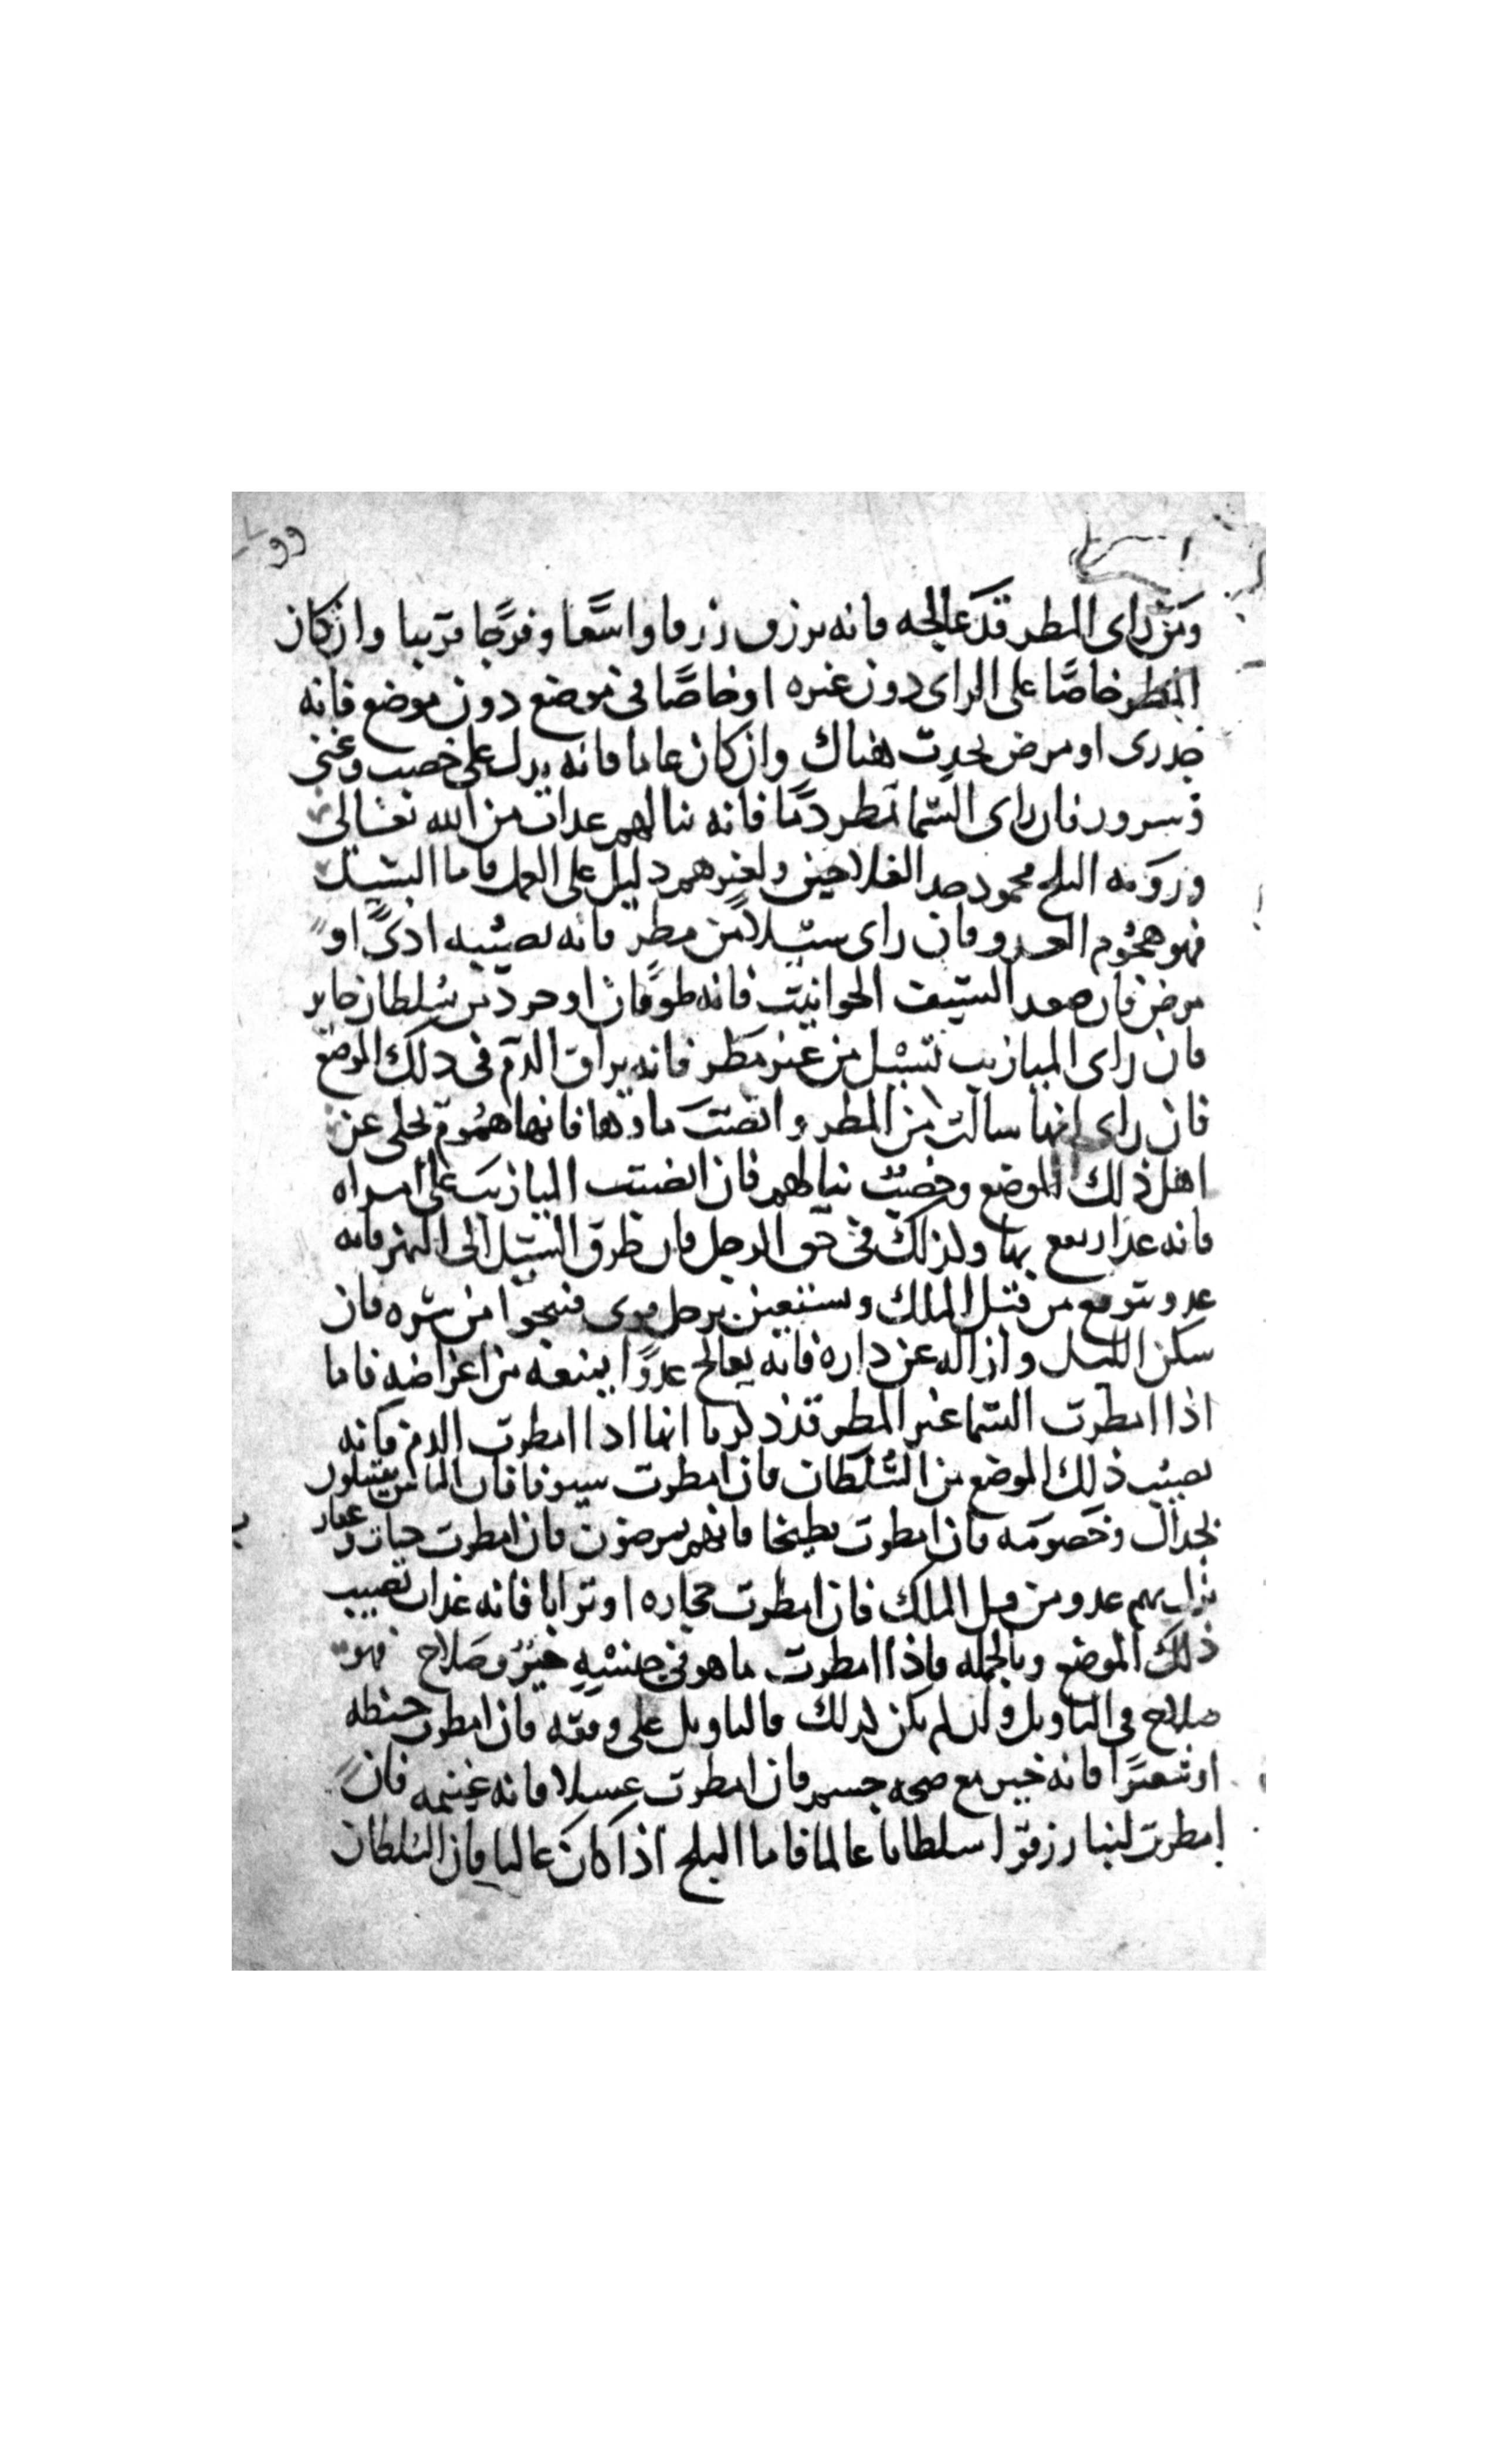 ومن راى المطر قد عالجه فانه يرزق رزقا واسعا وفرجا قريبا وان كان
المطر خاصا على الراى دون غيره او خاصا فى موضع دون موضع فانه
جدرى او مرض يحدث هناك وان كان عاما فانه يدل على خصب وغنى
وسرور فان راى السما تمطر دما فانه ينالهم عذاب من الله تعالى
وروية الثلج محمود ضد الفلاحين ولغيرهم دليل على العمل فاما السيل
فهو هجوم العدو فان راى سيلا من مطر فانه يصيبه اذى او
مرض فان صعد السيل الحوانيت فانه طوفان او حرد من سلطان جاير
فان راى الميازيب تسيل من غير مطر فانه يراق الدم فى ذلك الموضع
فان راى انها سالت من المطر وانصبت ماوها فانها هموم تجلى عن
اهل ذلك الموضع وخصب ينالهم فان انصبت الميازيب على امراه
فانه عذاب يقع بها وكذلك فى حق الرجل فان طرق السيل الى النهر فانه
عدو يتوقع من قبل الملك ويستعين برجل قوى فينجوا من شره فان
سكن السيل وازاله عن داره فانه يعالج عدوا يمنعه من اغراضه فاما
اذا امطرت السما غير المطر قد ذكرنا انها اذا امطرت الدم فانه
يصيب ذلك الموضع من السلطان فان امطرت سيوفا فان الناس يبتلون
بجدال وخصومه فان امطرت بطيخا فانهم يمرضون فان امطرت حيات وعقار
ب
نزل بهم عدو من قبل الملك فان امطرت حجاره او ترابا فانه عذاب يصيب
ذلك الموضع وبالجمله فاذا امطرت ما هو فى جنسه خير وصلاح فهو
صلاح فى التاويل وان لم يكن كذلك فالتاويل على وفقه فان امطرت حنطه
او شعيرا فانه خير مع صحه جسم فان امطرت عسلا فانه غنيمه فان
امطرت لبنا رزقوا سلطانا عالما فاما الثلج اذا كان غالبا فان السلطان